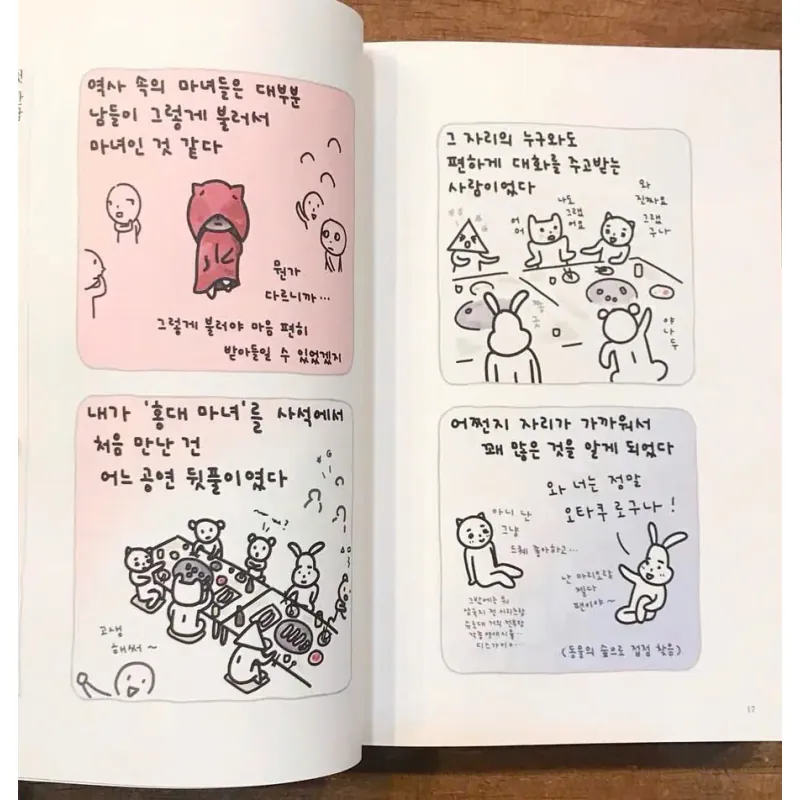 역사 속의 마녀들은 대부분
남들이 그렇게 불러서
마녀인 것 같다
뭔가
다르니까…
그렇게 불러야 마음 편히
받아들일 수 있었겠지
내가 '홍대 마녀'를 사석에서
처음 만난 건
어느 공연 뒷풀이였다
고생
했써~
그 자리의 누구와도
편하게 대화를 주고받는
사람이었다
어
어
나도
그랬
어요
와
진짜요
그랬
구나
야
나두
어쩐지 자리가 가까워서
꽤 많은 것을 알게 되었다
와 너는 정말
오타쿠로구나!
아니 난
그냥
드퀘 좋아하고…
그밖에는 뭐
난 마리오랑
젤다
팬이야~
(동물의 숲으로 접점 찾음)
17